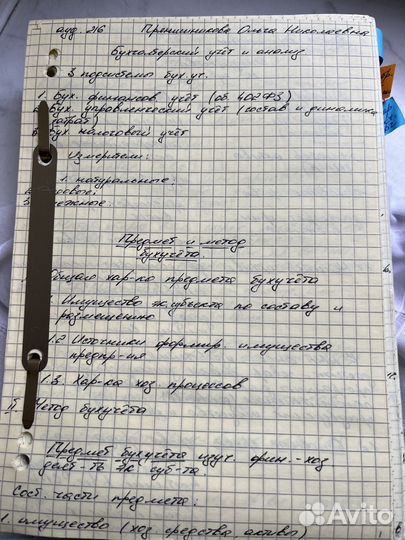 ауд. 216 Пряншникова Ольга Николаевна
Бухгалтерский учёт и анализ
3 подсистемы бух.уч.
1. Бух. финансов. учёт (об 402ФЗ)
Бух. управленческий учёт (состав и динамика
затрат)
Бух. налоговый учёт
Измерители:
1. натуральные;
овые;
3 нежные.
Предмет и метод
бухучёта.
Общая хар-ка предмета бухучёта
Имущество эк. субъекта по составу и
размещению
1.2 Источники формир. имущества
предпр-ия
1.3. Хар-ка хоз. процессов
II. Метод бухучёта
Предмет бухучёта изуч. фин.-хоз
деят-ть эк. суб-та.
Сост. части предмета:
1. имущество (хоз. средства, активы)
Avito